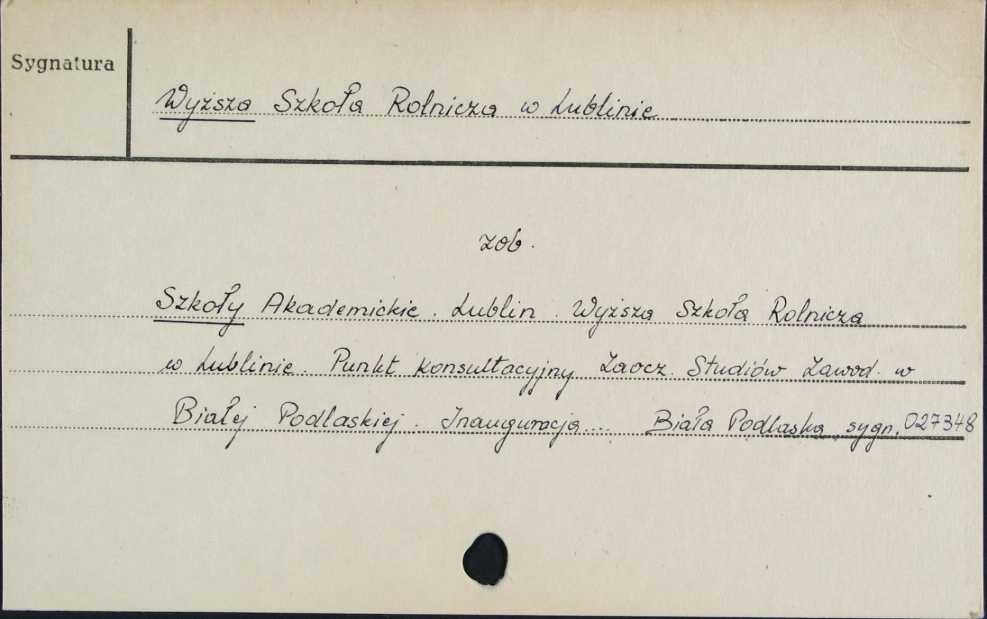 Sygnatura
Wyższa Szkoła Rolnicza w Lublinie
zob.
Szkoły Akademickie. Lublin. Wyższa Szkoła Rolnicza
w Lublinie. Punkt Konsultacyjny Zaocz. Studiów Zawod. w
Białej Podlaskiej. Inauguracja... Biała Podlaska, sygn. 027348